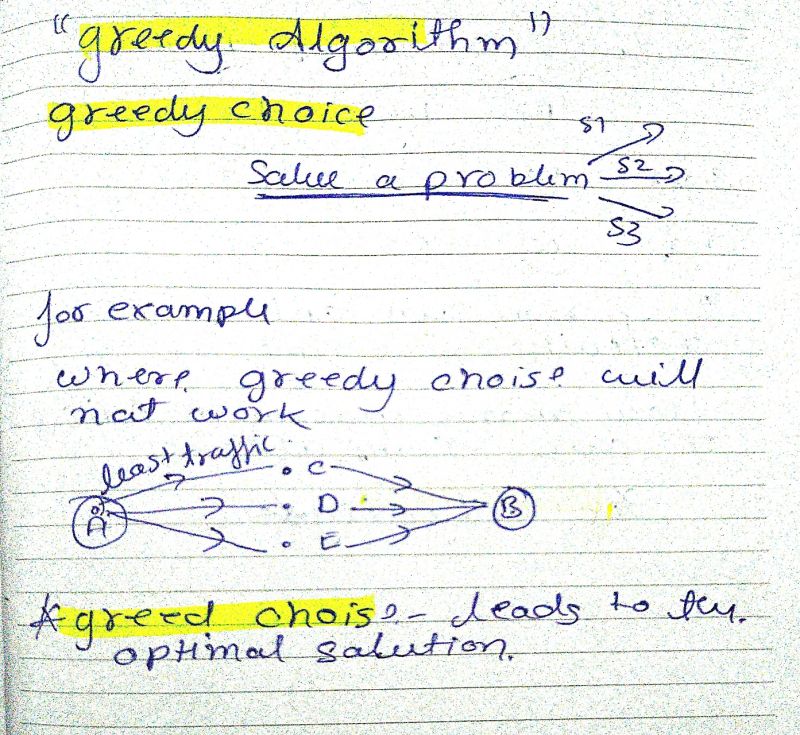 "greedy Algorithm"
greedy choice
S1
Salve a problem S2
S3
for example
where greedy choise will
nat work
least traffic
C
A D B
E
* greed choise - leads to the
optimal salution.